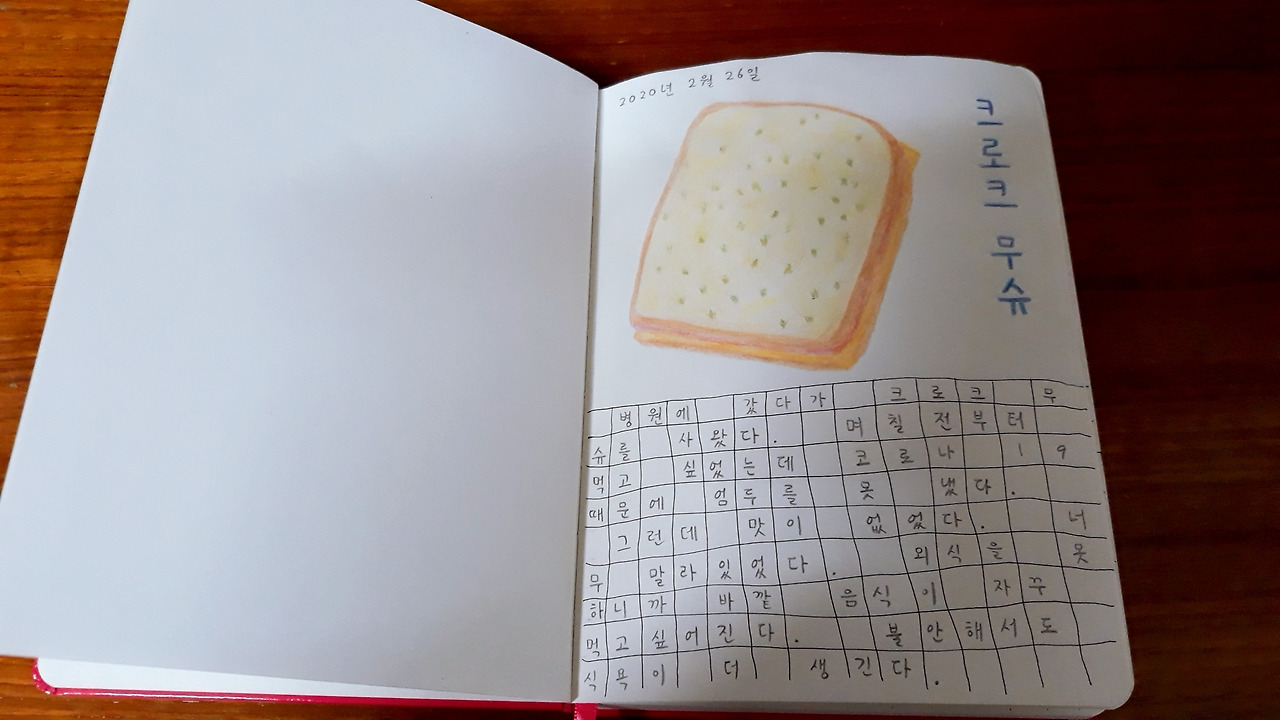 2020년 2월 26일
크로크 무슈
병원에 갔다가 크로크 무
슈를 사왔다. 며칠 전부터
먹고 싶었는데 코로나 19
때문에 엄두를 못 냈다.
그런데 맛이 없었다. 너
무 말라있었다. 외식을 못
하니까 바깥 음식이 자꾸
먹고싶어진다. 불안해서도
식욕이 더 생긴다.